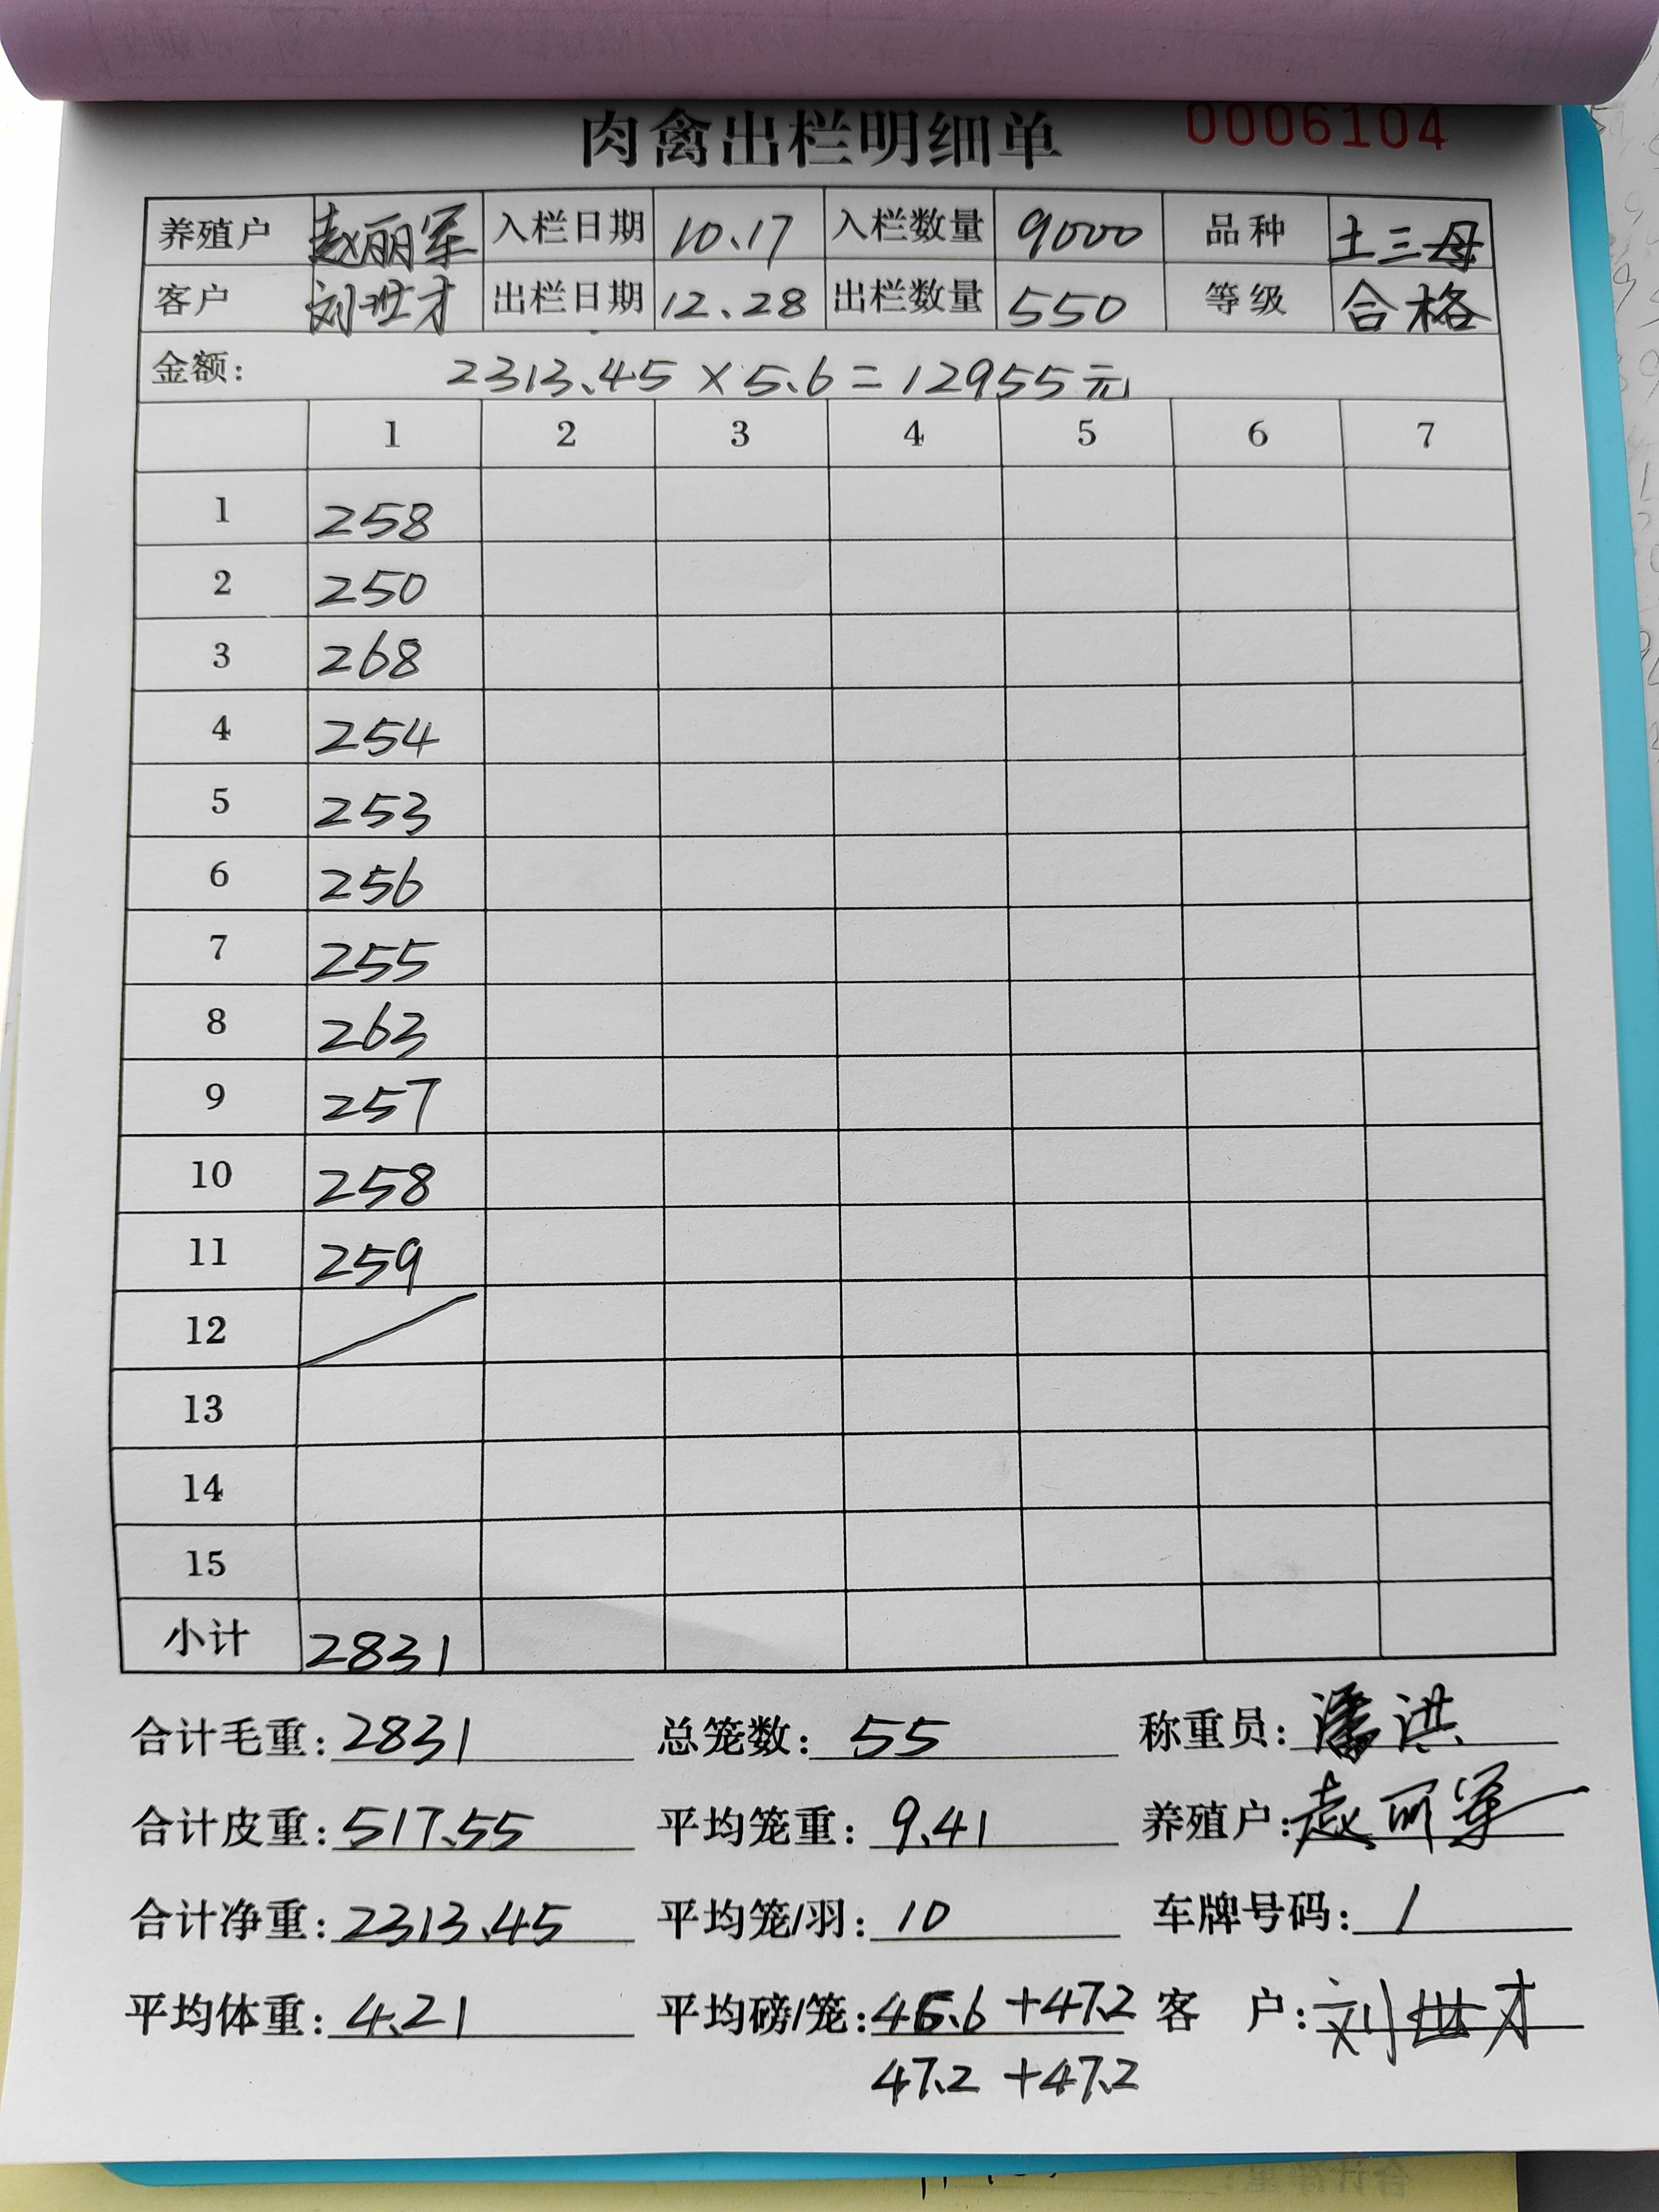 肉禽出栏明细单 0006104
养殖户 赵丽军 入栏日期 10.17 入栏数量 9000 品种 土三母
客户 刘世才 出栏日期 12.28 出栏数量 550 等级 合格
金额: 2313.45 × 5.6 = 12955元
1 2 3 4 5 6 7
1 258
2 250
3 268
4 254
5 253
6 256
7 255
8 263
9 257
10 258
11 259
12
13
14
15
小计 2831
合计毛重: 2831 总笼数: 55 称重员: 潘洪
合计皮重: 517.55 平均笼重: 9.41 养殖户: 赵丽军
合计净重: 2313.45 平均笼/羽: 10 车牌号码: /
平均体重: 4.21 平均磅/笼: 46.6 + 47.2 客户: 刘世才
47.2 + 47.2